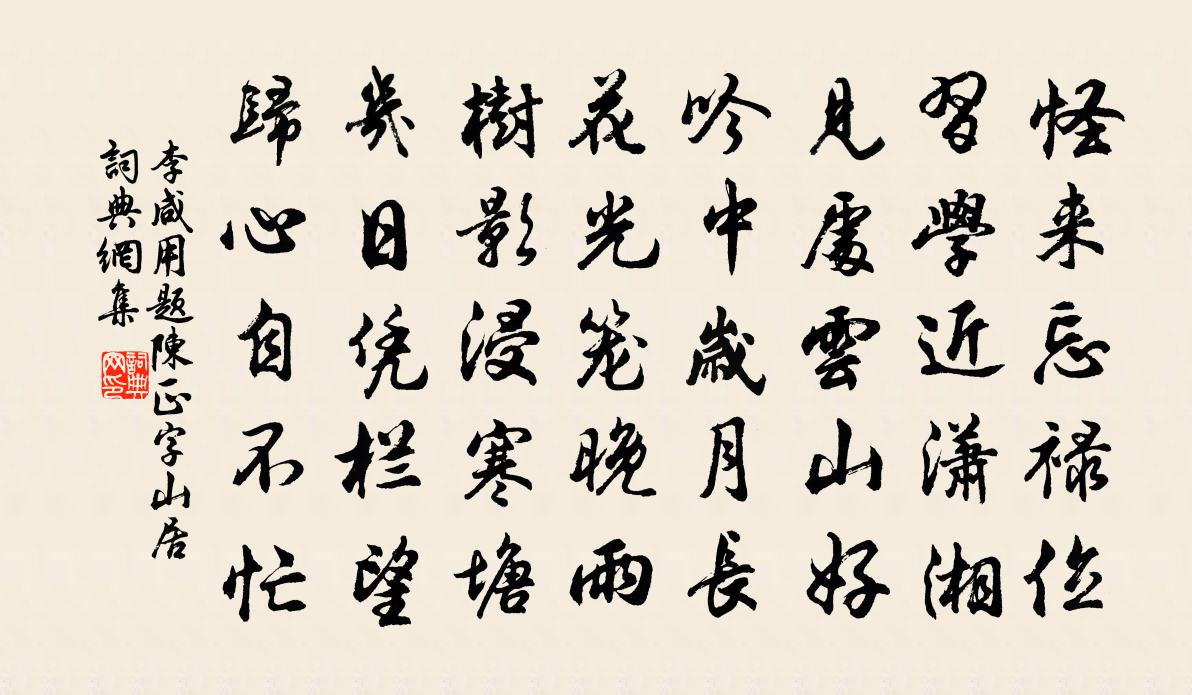 怪来忘禄位
習學近瀟湘
見處雲山好
吟中歲月長
花光笼晚雨
樹影浸寒塘
幾日凭栏望
歸心自不忙
李咸用題陳正字山居
詞典網集
詞典网印